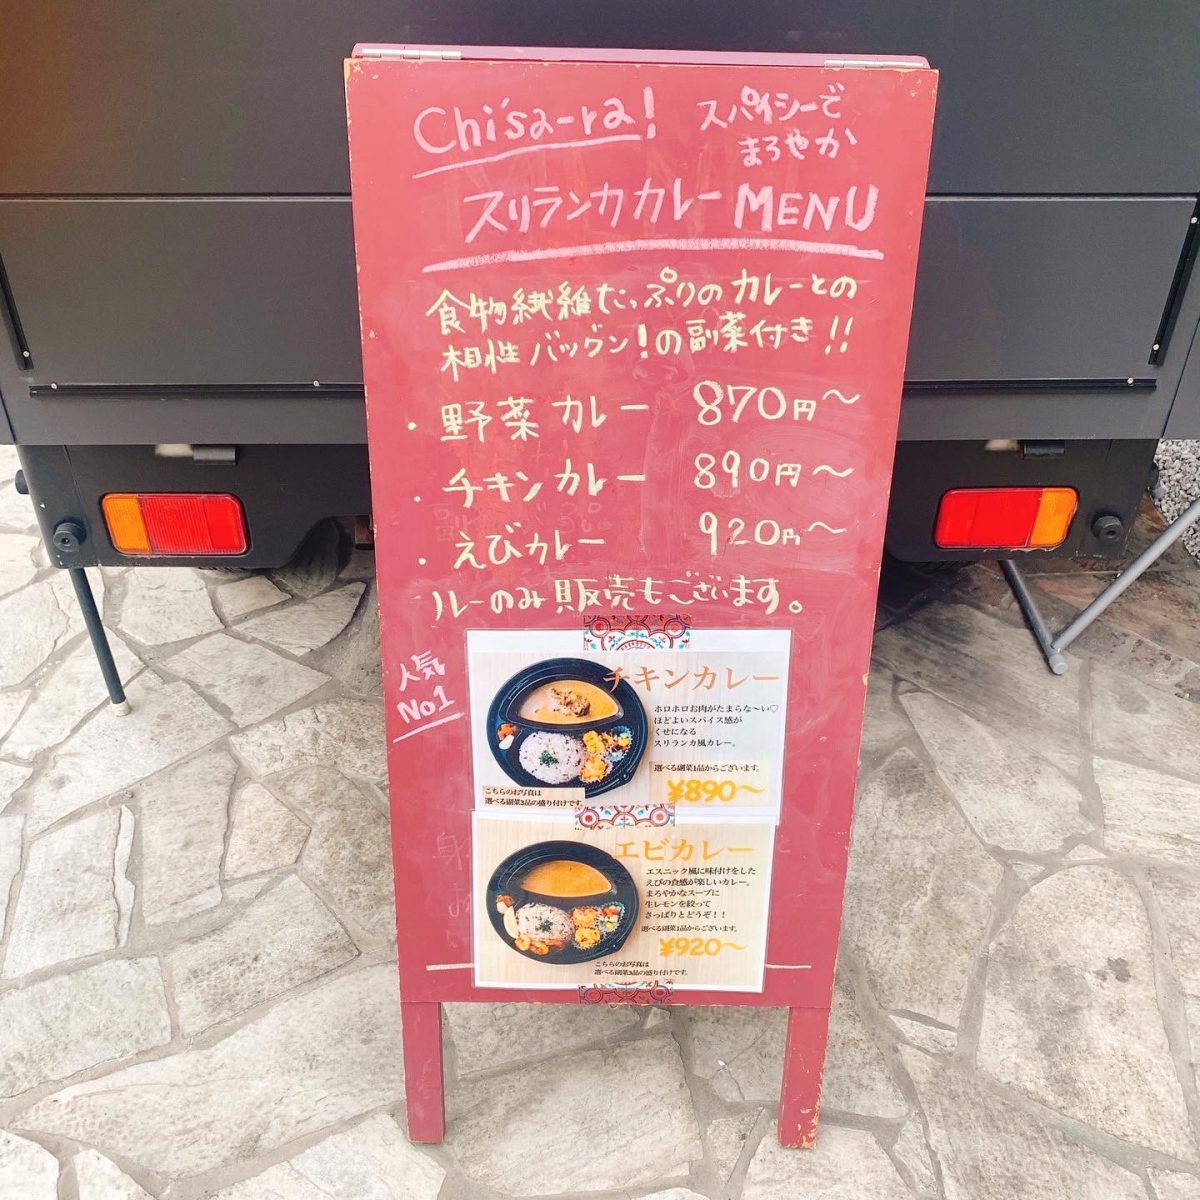 Chisa-ra!
スパイシーで
まろやか
スリランカカレー MENU
食物繊維たっぷりのカレーとの
相性バツグン!の副菜付き!!
・野菜カレー 870円〜
・チキンカレー 890円〜
・えびカレー 920円〜
ルーのみ販売もございます。
人気
No1
チキンカレー
ホロホロお肉がたまらな〜い♡
ほどよいスパイス感が
くせになる
スリランカ風カレー。
選べる副菜1品からございます。
¥890〜
こちらのお写真は
選べる副菜3品の盛り付けです。
エビカレー
エスニック風に味付けをした
えびの食感が楽しいカレー。
まろやかなスープに
生レモンを絞って
さっぱりとどうぞ!!
選べる副菜1品からございます。
¥920〜
こちらのお写真は
選べる副菜3品の盛り付けです。